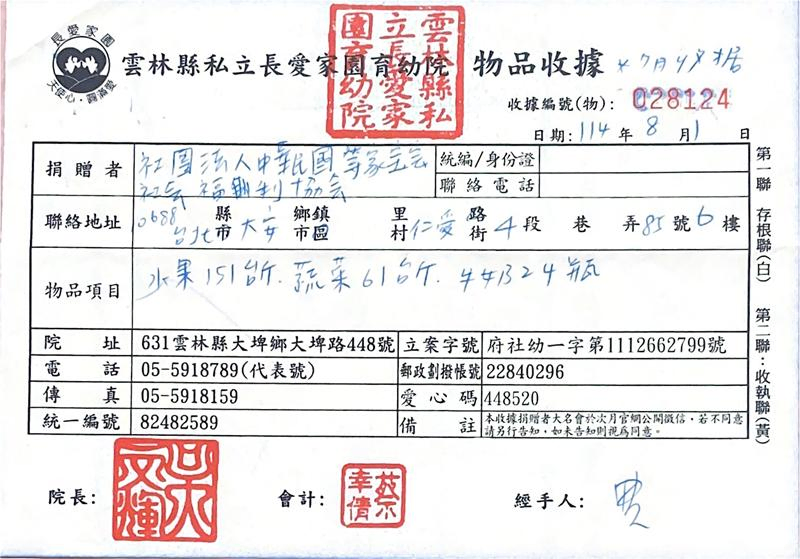 長愛家園
天使心・圓滿愛
雲林縣私立長愛家園育幼院 物品收據 *7月收据
雲林縣私立長愛家園育幼院
收據編號(物): 028124
日期: 114 年 8 月 1 日
捐贈者 社團法人中華民國等家宝宝社会福利協会
統編/身份證
聯絡電話
聯絡地址 0688 台北 縣市 大安 鄉鎮市區 里村 仁愛 路街 4 段 巷 弄 85 號 6 樓
物品項目 水果151台斤. 蔬菜61台斤. 24瓶
院址 631雲林縣大埤鄉大埤路448號 立案字號 府社幼一字第1112662799號
電話 05-5918789(代表號) 郵政劃撥帳號 22840296
傳真 05-5918159 愛心碼 448520
統一編號 82482589 備註 本收據捐贈者大名會於次月官網公開徵信，若不同意請另行告知，如未告知則視為同意。
第一聯 存根聯(白) 第二聯：收執聯(黃)
院長: 會計: 蔡幸倩 經手人: